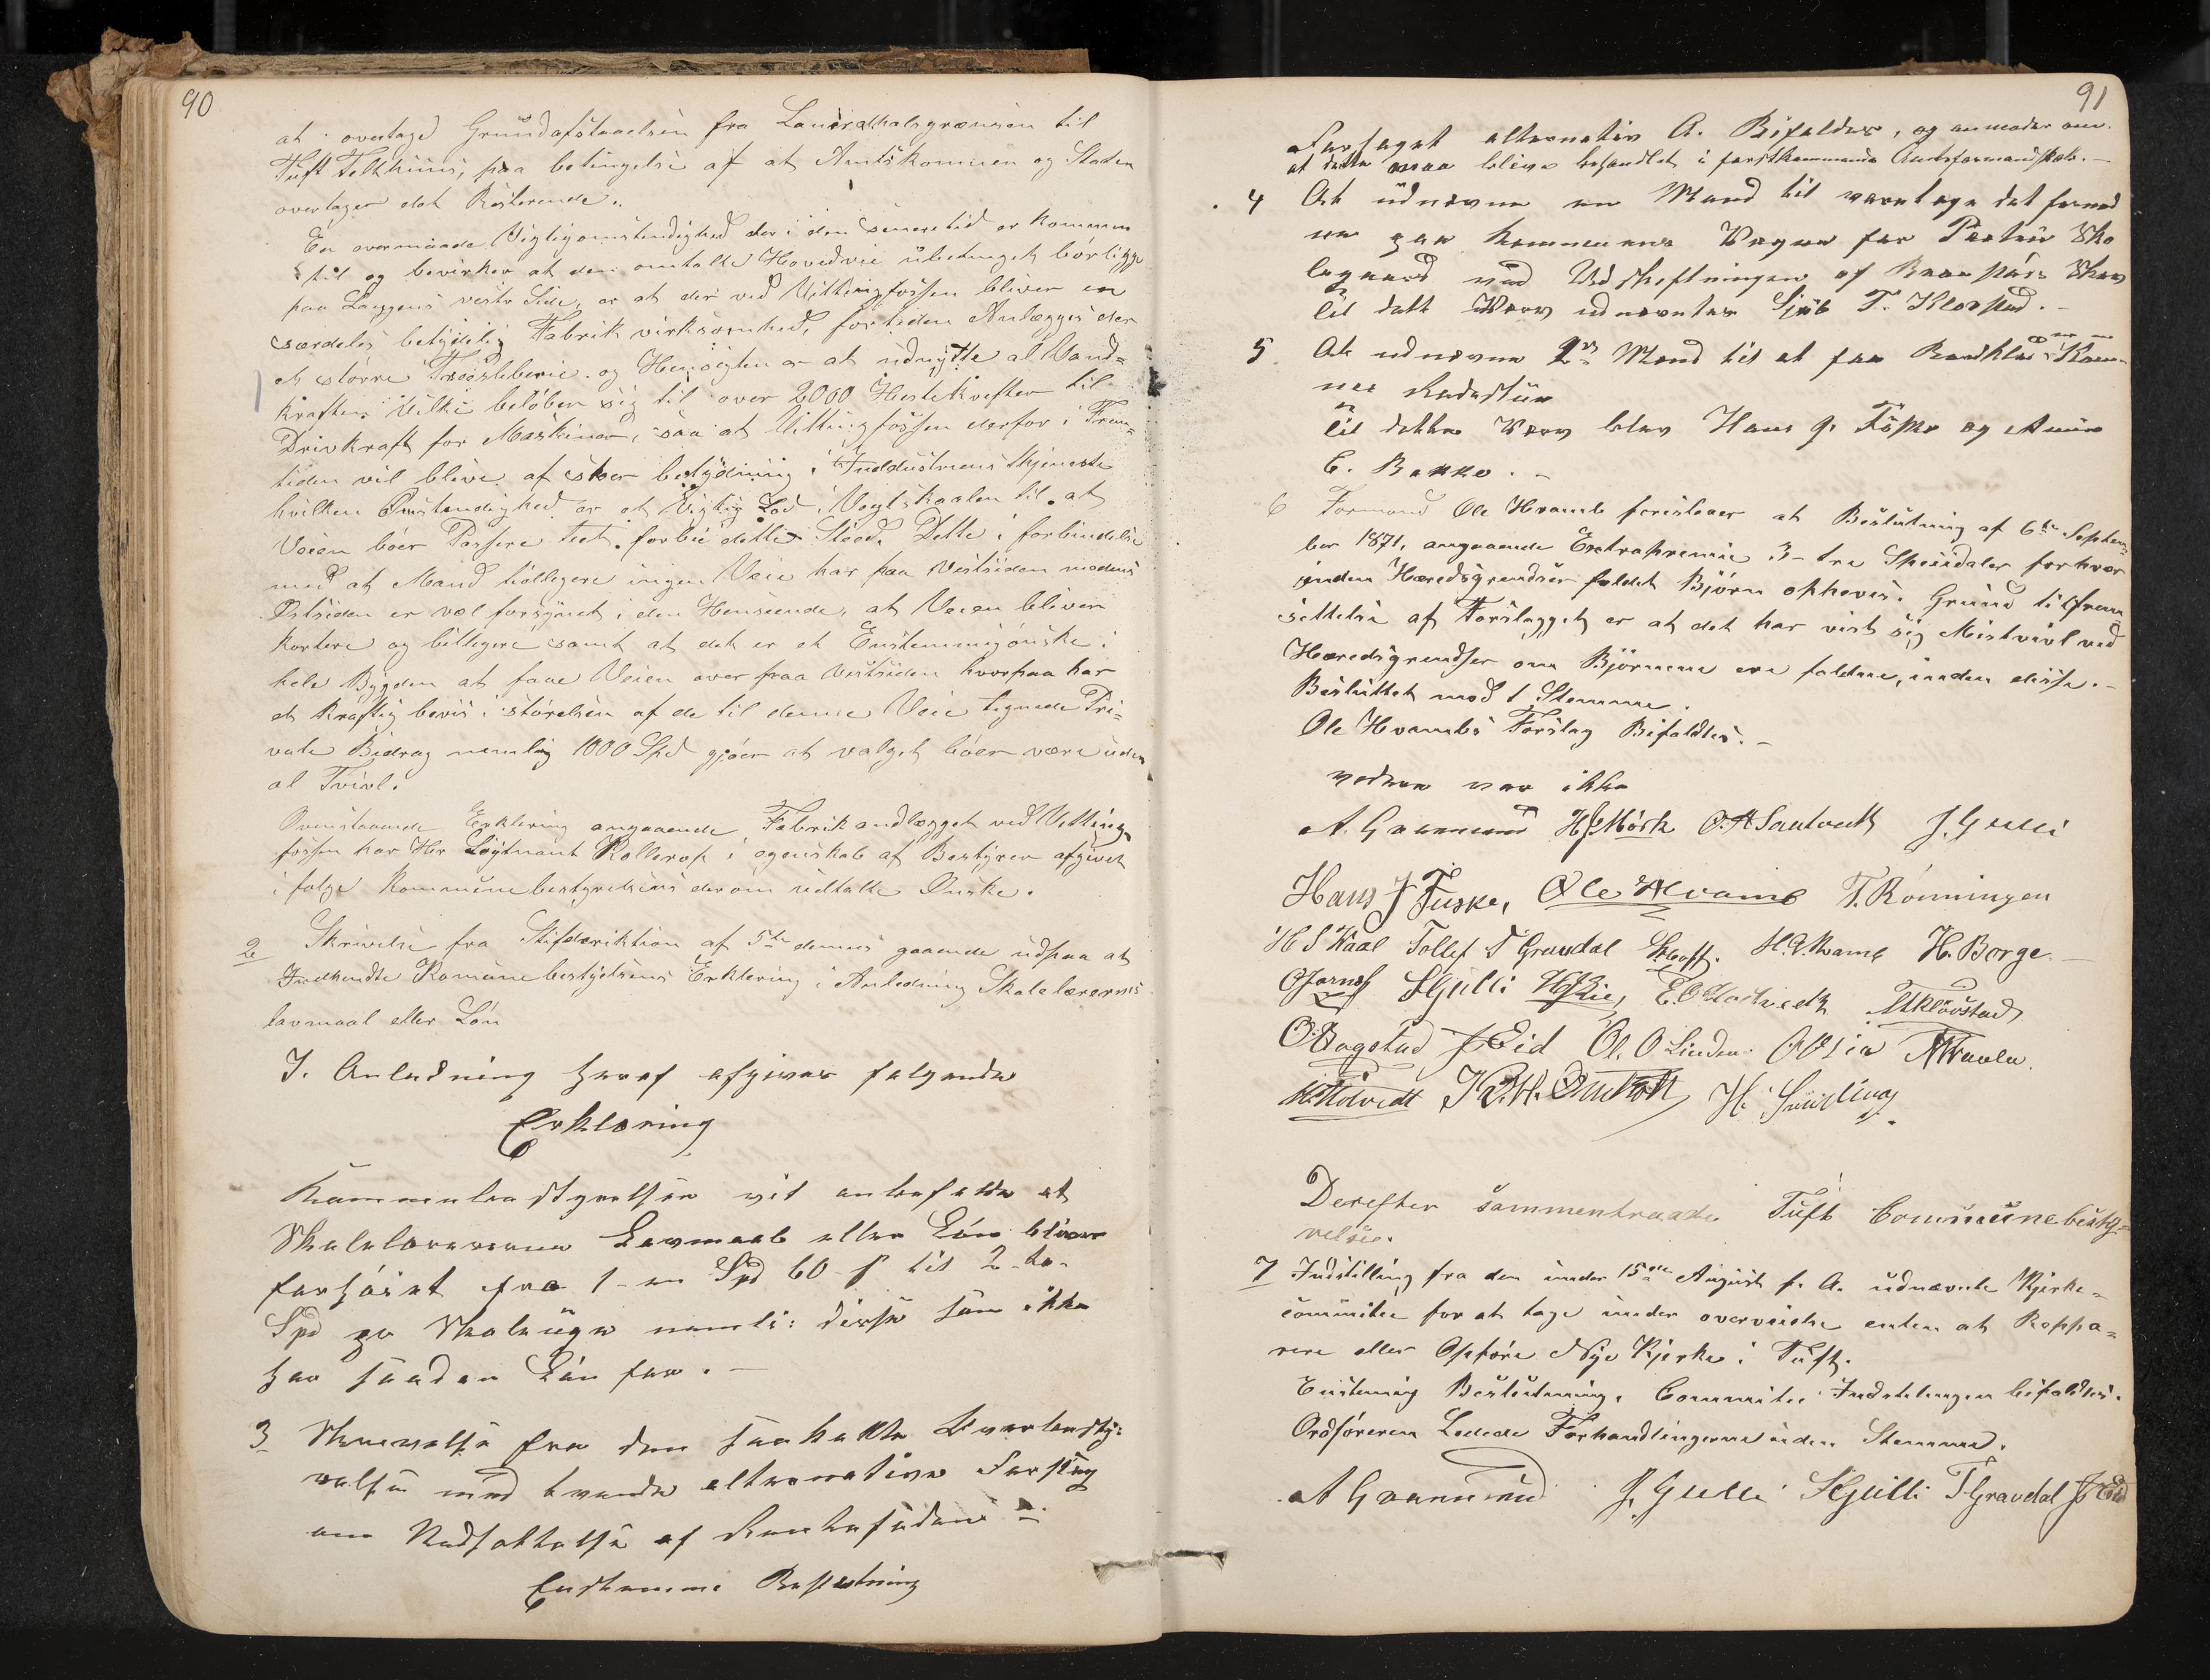 90
at overtage Grundafstaaelsen fra Laurdalhalsgrænsen til
Tuft Telthuus, paa betingelse af at Amtskommunen og Staden
overtager det Resterende.
En overmaade Vigtigomstendighed der i den senere tid er kommen
til og bevirker at den omtalte Hovedvei ubetinget bör ligge
paa Laagens vestre Side, er at der ved Vittingfossen bliver en
særdeles betydelig Fabrik virksomhed, for tiden Anlægges der
et större Træsleberie og Hensigten er at udnytte al Vand-
kraften vilke belöber sig til over 2000 Hestekrefter til
Drivkraft for Maskiner, saa at Vittingfossen derfor i Frem-
tiden vil blive af stor betydning i Inddustriens tjeneste
hvilken Omstendighed er et Vigtig Lod i Vegtskaalen til at
Veien bör Passere tet forbi dette Sted. Dette i forbindelse
med at Mand tidligere ingen Veie har paa Vestsiden medens
Östsiden er vel forsynet i den Henseende, at Veien bliver
kortere og billigere samt at det er et Enstemmig önske i
hele Bygden at faae Veien over paa Vestsiden hvorpaa har
et kraftig bevis i störelsen af de til denne Veie tegnede Pri-
vate Bidrag nemlig 1000 Spd gjöer at valget böer være uden
al Tvivl.
Ovenstaaende Erklering angaaende Fabrikandlægget ved Vittings
fossen har Her Löytnant Rollerop i egenskab af Bestyrer afgivet
i fölge Kommunebestyrelsens derom udtalte Önske.
2 Skrivelse fra Stifderiktion af 5te dennes gaaende udpaa at
Indhendte Komunebestyelsens Erklering i Anledning Skolelærernes
lavmaal eller Lön
I. Anledning heraf afgives følgende
Erklæring
Kommunebestyrelsen vil anbefale at
Skolelærerenes Lavmaal eller Lön bliver
forhöiet fra 1 - en Spd 60 s til 2 - to -
Spd pr Skoleuge nemli: disse som ikke
har saadan Lön för. -
3 Skrivelse fra den saakaldte
relse med tvende alternative Forslag
om Nedsættelse af
Enstemme Beslutning
91
Forslaget alternativ A. Bifaldes, og anmoder om.
at dette maa blive behandlet i förstkommende Amtsformandskab. -
4 At udnævne en Mand til varetage det fornød
ne paa Kommunens Vegne for
lagaard ved Udskiftningen af Skov
til dette Hverv udnævntes T. Klovstad. -
5 At udnævne 2de Mænd til at
til dette Hverv blev Hans J. Foske og
C. Bakke. -
6 Formand Ole Hvamb foreslaaer at Beslutning af 6te Septem-
ber 1871, angaaende Extrapremie 3 - tre Speiidaler for hver
inden Heredsgrendser faldet Björn ophæves. Grund til frem
settelse af Forslagget er at det har vist sig Mistvivl ved
Heredsgrendser om Björnene ere faldne, inden disse. -
Besluttet mod 1 Stemme.
Ole Hvambs Forslag Bifaldtes. -
vedere var ikke
A. Gaarmand H J Mörk O. A Santvedt J. Gulli
Hans J Fuske, Ole Hvamb T. Rönningen
H S Waal Tollef T Gravdal H. Q. Kvame H. Borge. -
SGulli
O. Bagstad J Eid Ol. O Linden O O Lia
Derefter sammentraade Tuft Communebesty-
relse.
7 Indstilling fra den under 15de August f. A. udnævnte Kjerke-
committe for at tage under overveielse enten at Reppa-
rere eller Opföre Nye Kjerke i Tuft.
Enstemig Beslutning. Commitee Indstelingen bifaldtes.
Ordföreren Ledede Forhandlingerne uden Stemme.
A Gaarmand J. Gulli SGulli T Gravdal J Eid